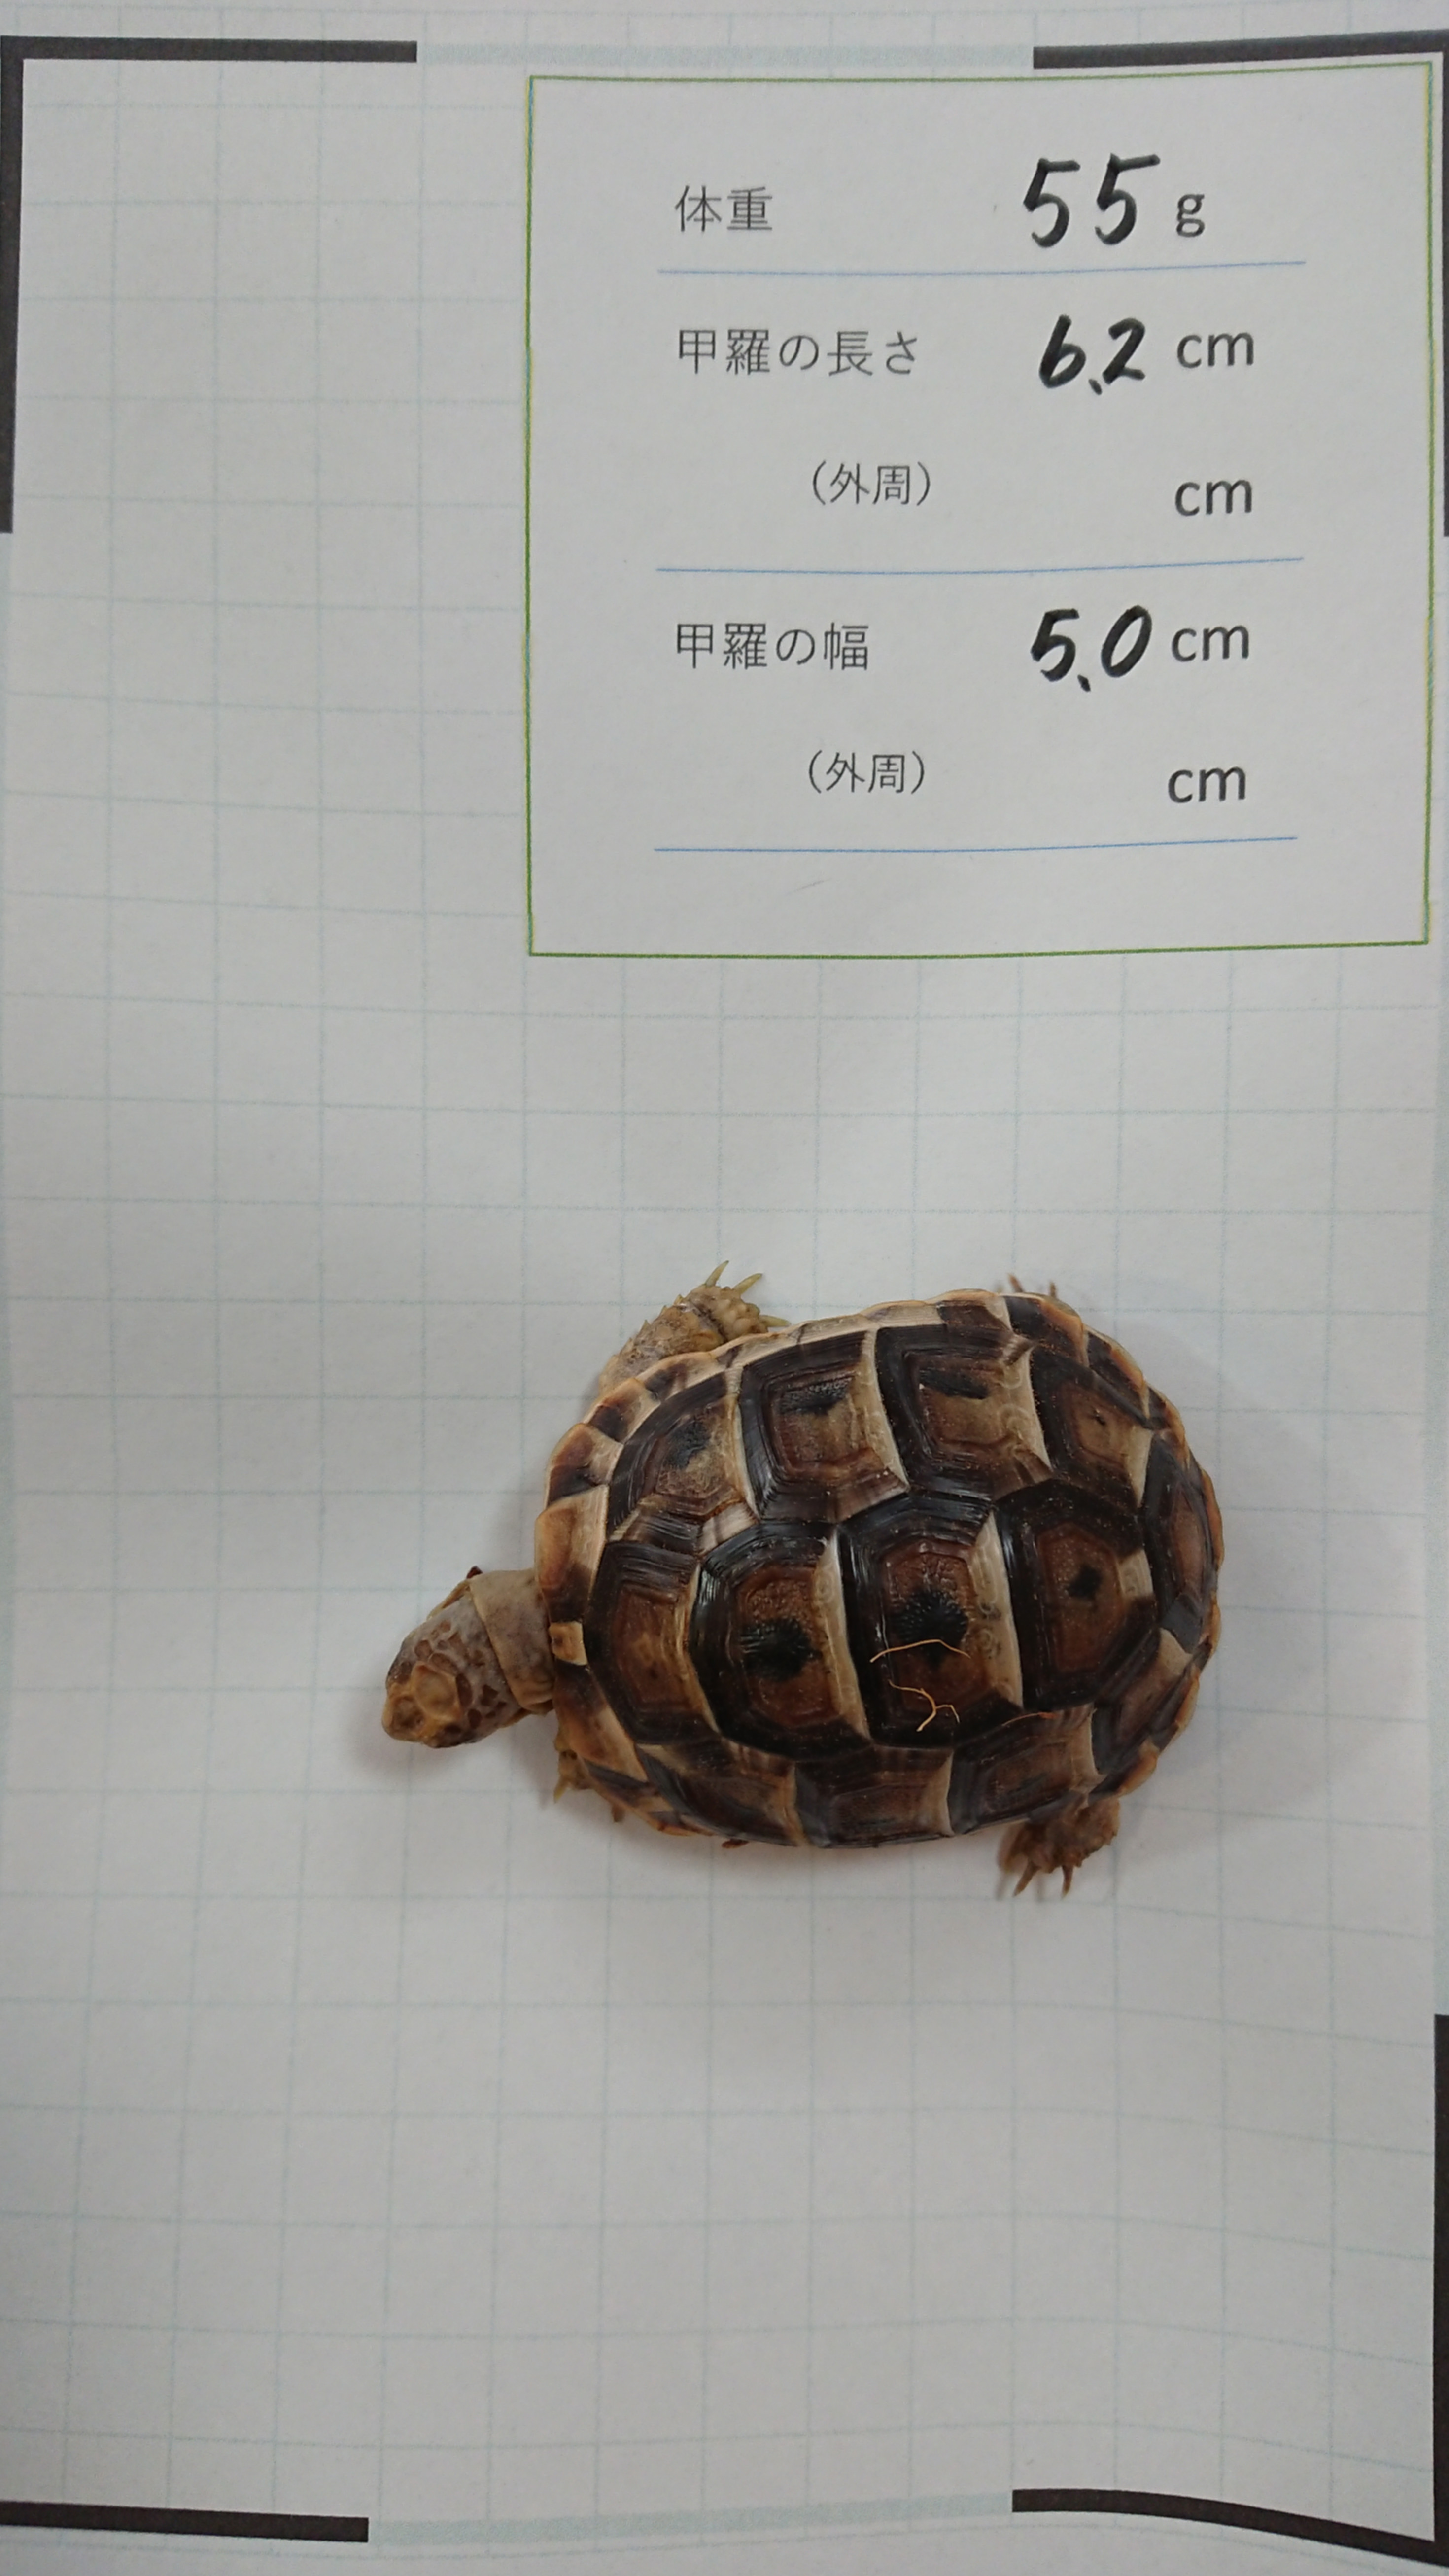 体重 55 g
甲羅の長さ 6.2 cm
（外周） cm
甲羅の幅 5.0 cm
（外周） cm